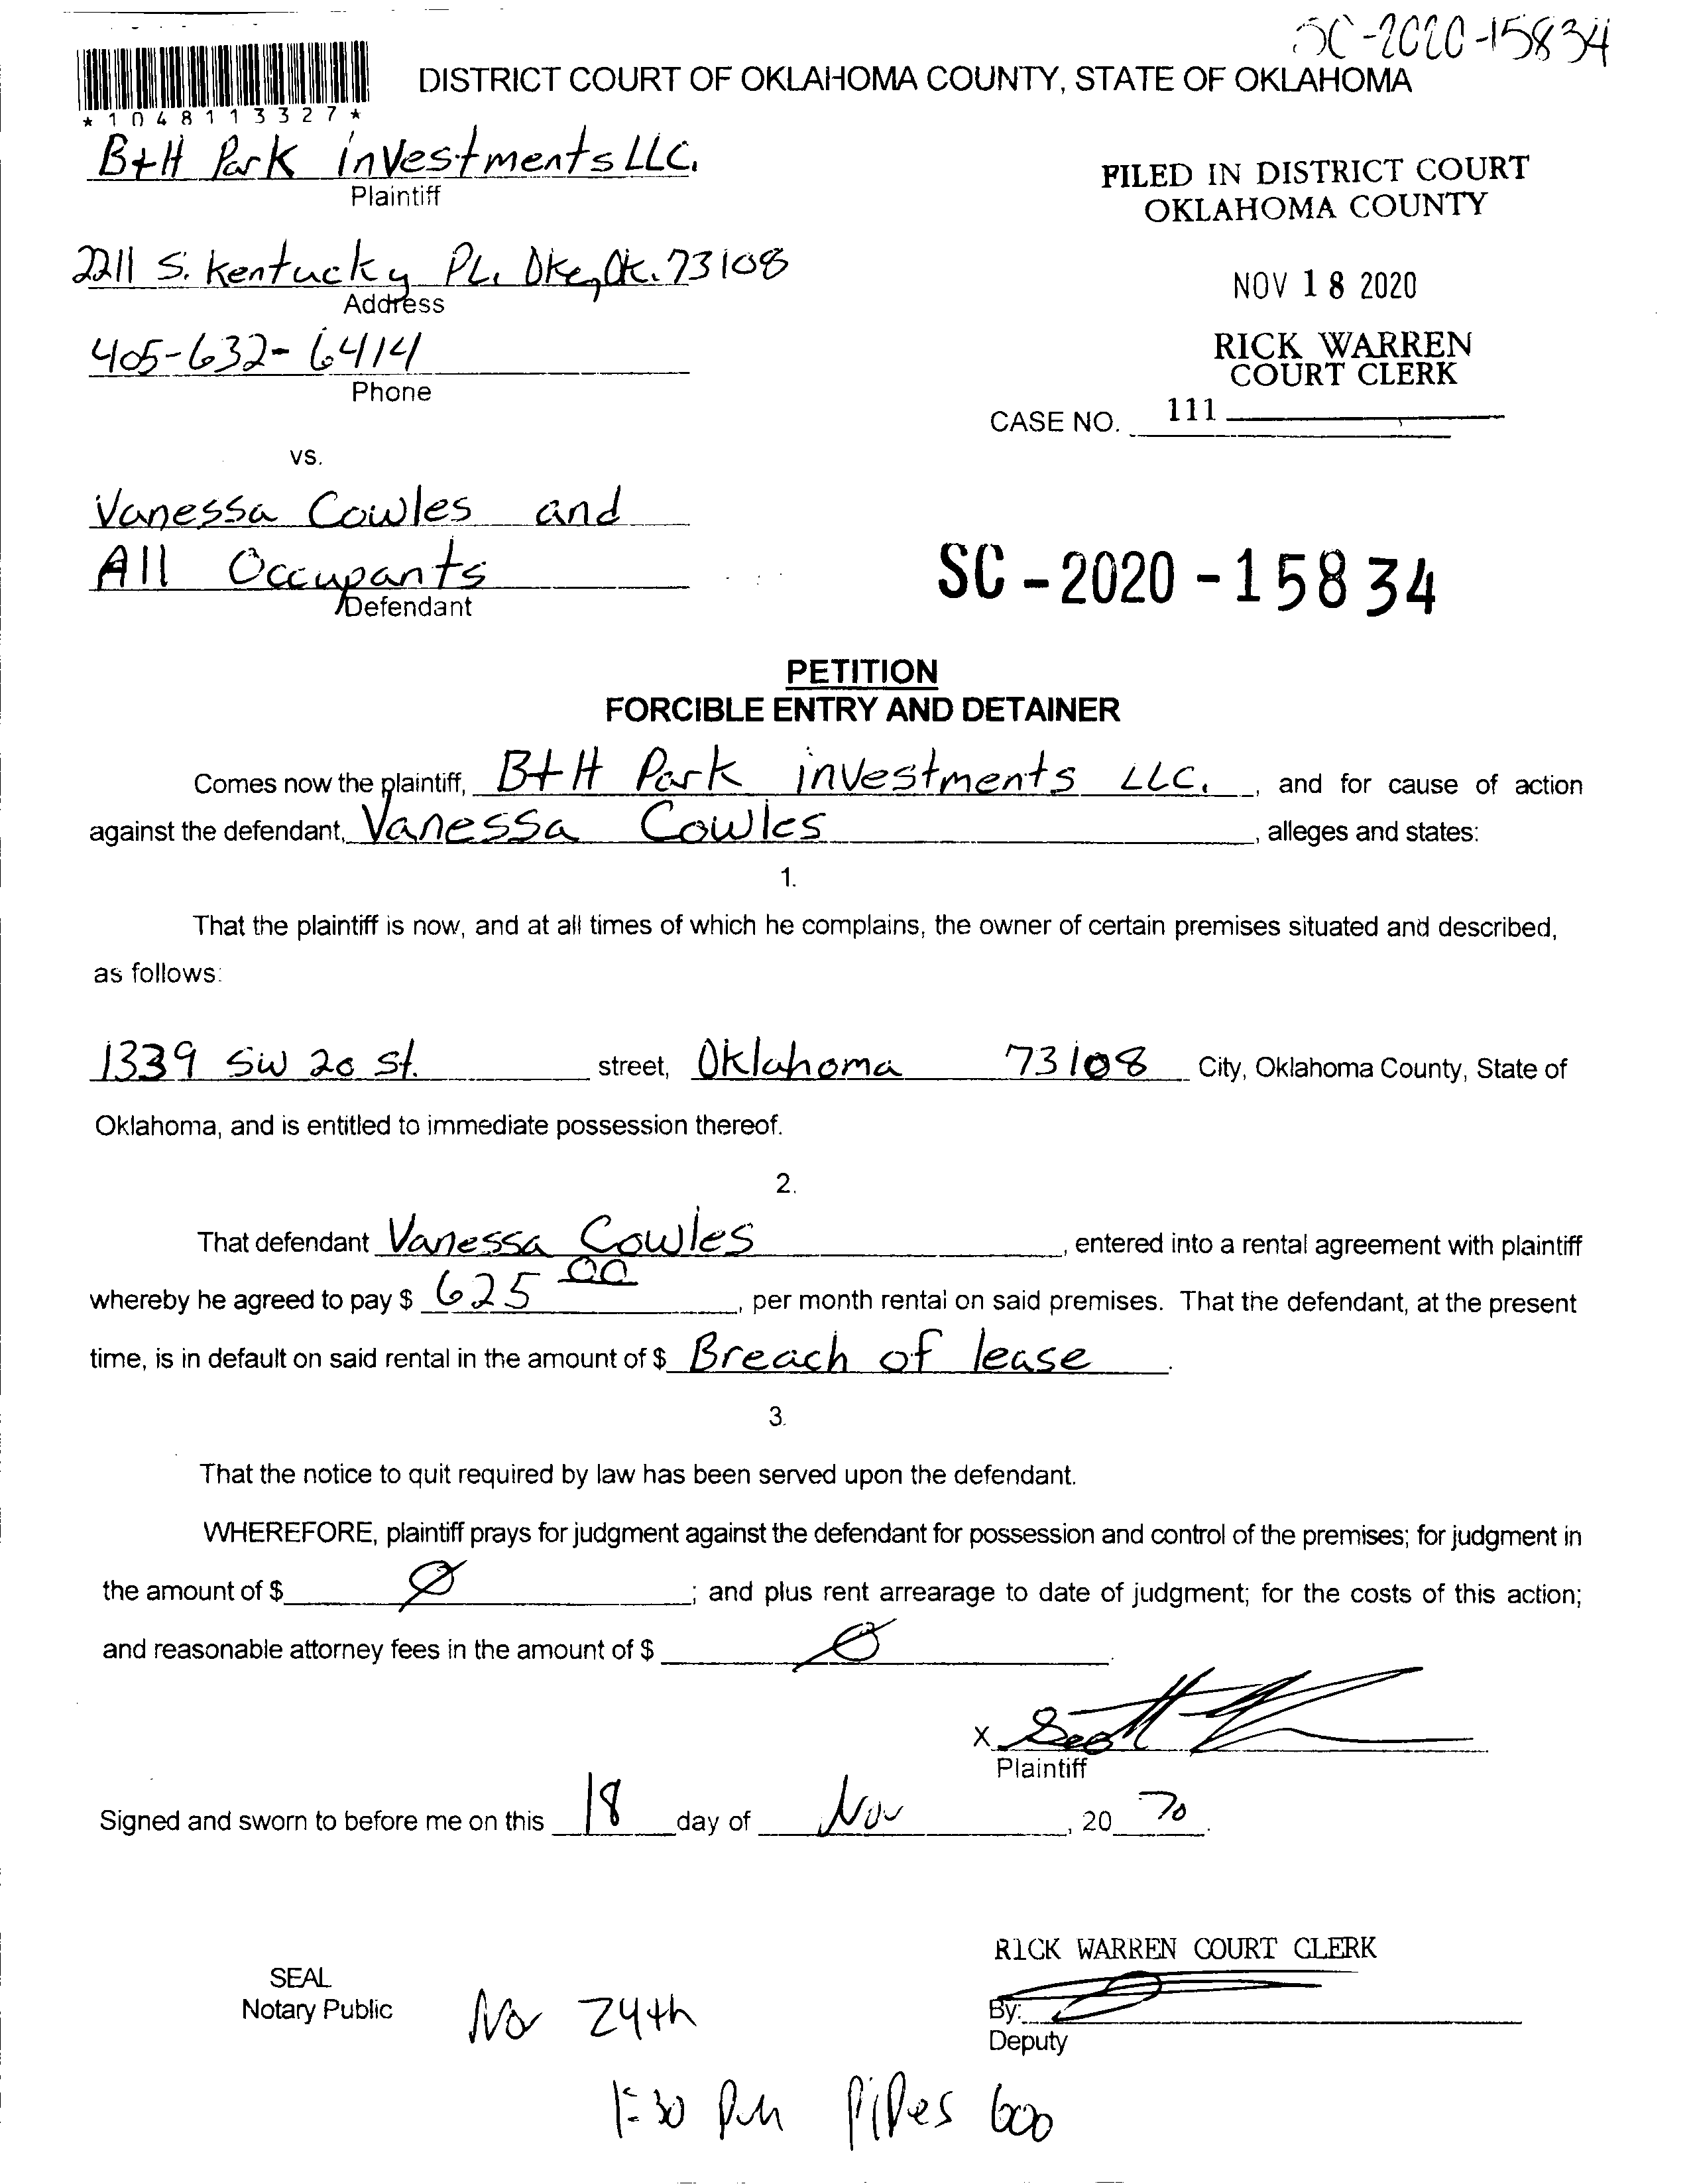 SC-2020-15834
DISTRICT COURT OF OKLAHOMA COUNTY, STATE OF OKLAHOMA
* 1 0 4 8 1 1 3 3 2 7 *
B+H Park investments LLC.
Plaintiff
FILED IN DISTRICT COURT
OKLAHOMA COUNTY
2211 S. Kentucky PL. Okc, Ok. 73108
Address
NOV 18 2020
405-632-6414
Phone
RICK WARREN
COURT CLERK
CASE NO. 111
vs.
Vanessa Cowles and
All Occupants
Defendant
SC-2020-15834
PETITION
FORCIBLE ENTRY AND DETAINER
Comes now the plaintiff, B+H Park investments LLC. , and for cause of action
against the defendant, Vanessa Cowles , alleges and states:
1.
That the plaintiff is now, and at all times of which he complains, the owner of certain premises situated and described,
as follows:
1339 SW 20 St. street, Oklahoma 73108 City, Oklahoma County, State of
Oklahoma, and is entitled to immediate possession thereof.
2.
That defendant Vanessa Cowles , entered into a rental agreement with plaintiff
whereby he agreed to pay $ 625 00 , per month rental on said premises. That the defendant, at the present
time, is in default on said rental in the amount of $ Breach of lease .
3.
That the notice to quit required by law has been served upon the defendant.
WHEREFORE, plaintiff prays for judgment against the defendant for possession and control of the premises; for judgment in
the amount of $ Ø ; and plus rent arrearage to date of judgment; for the costs of this action;
and reasonable attorney fees in the amount of $ Ø .
X Scott
Plaintiff
Signed and sworn to before me on this 18 day of Nov , 20 20 .
RICK WARREN COURT CLERK
SEAL
Notary Public
Nov 24th
By:
Deputy
1:30 PM Pipes 600